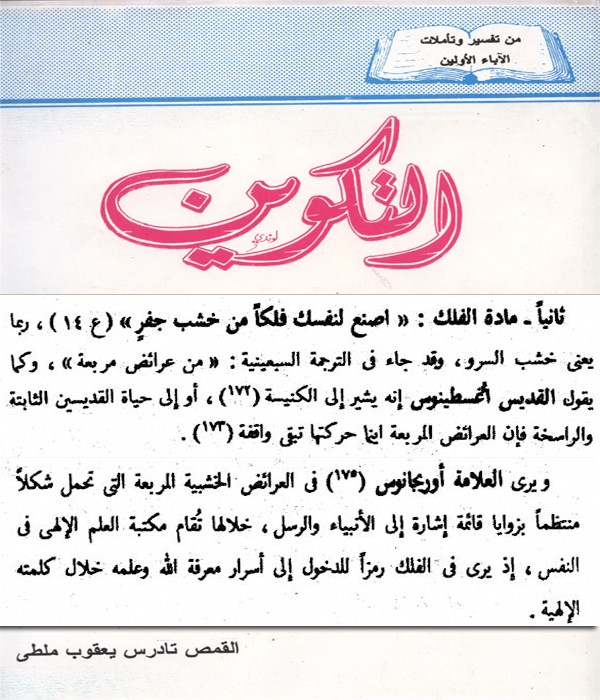 من تفسير وتأملات
الآباء الأولين
التكوين
لوندي
ثانياً ـ مادة الفلك : « اصنع لنفسك فلكاً من خشب جفرٍ » ( ع ١٤ ) ، ربما
يعنى خشب السرو ، وقد جاء فى الترجمة السبعينية : « من عرائض مربعة » ، وكما
يقول القديس أغسطينوس إنه يشير إلى الكنيسة (١٧٢) ، أو إلى حياة القديسين الثابتة
والراسخة فإن العرائض المربعة اينما حركتها تبقى واقفة (١٧٣) .
ويرى العلامة أوريجانوس (١٧٥) فى العرائض الخشبية المربعة التى تحمل شكلاً
منتظماً بزوايا قائمة إشارة إلى الأنبياء والرسل ، خلالها تُقام مكتبة العلم الإلهى فى
النفس ، إذ يرى فى الفلك رمزاً للدخول إلى أسرار معرفة الله وعلمه خلال كلمته
الإلهية .
القمص تادرس يعقوب ملطى